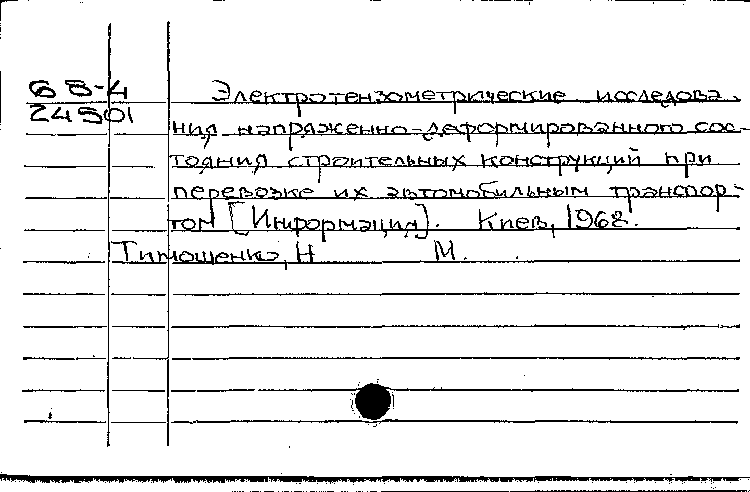 68-4 Электротензометрические исследова-
24501 ния напряженно-деформированного сос-
тояния строительных конструкций при
перевозке их автомобильным транспор-
том [Информация]. Киев, 1968.
Тимошенко, Н М.